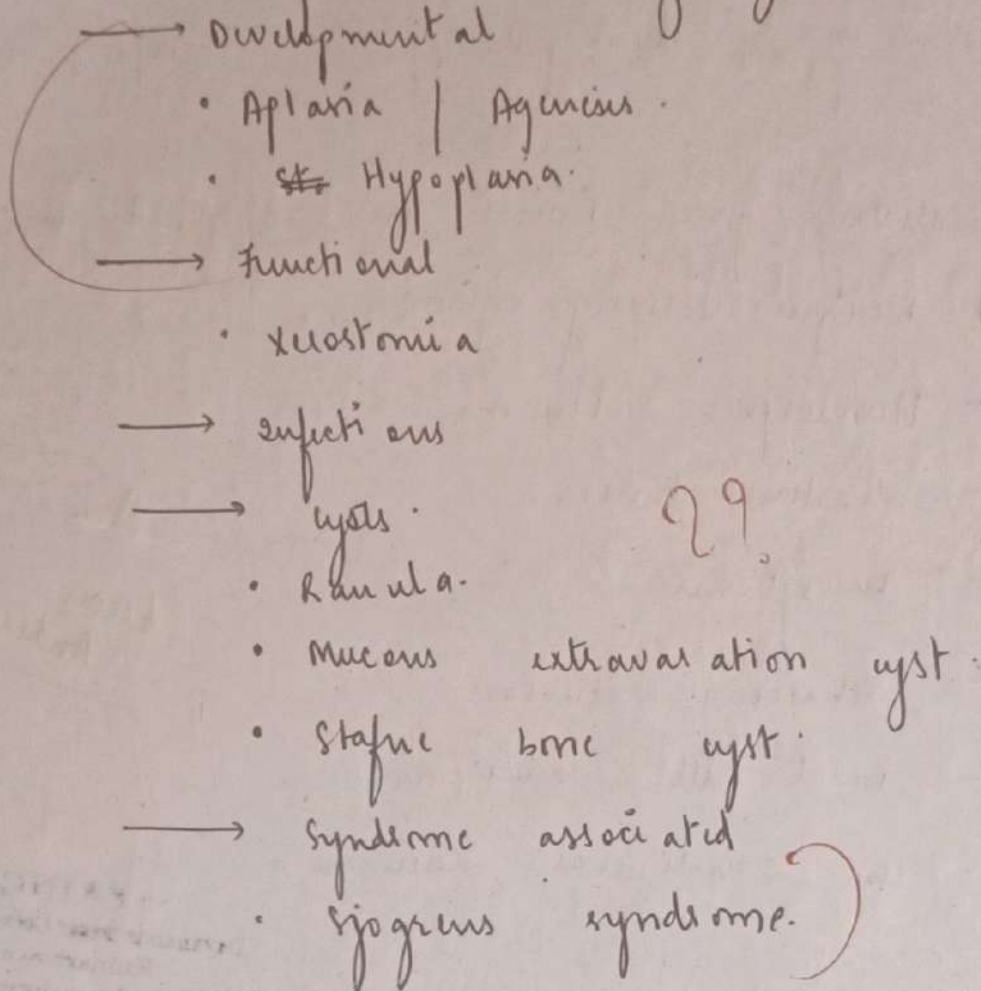 → Developmental
• Aplasia | Agenesis.
• Hypoplasia.
→ Functional
• Xerostomia
→ Infections
→ Cysts.
29.
• Ranula.
• Mucous extravasation cyst.
• Stafne bone cyst.
→ Syndrome associated
• Sjogrens syndrome.